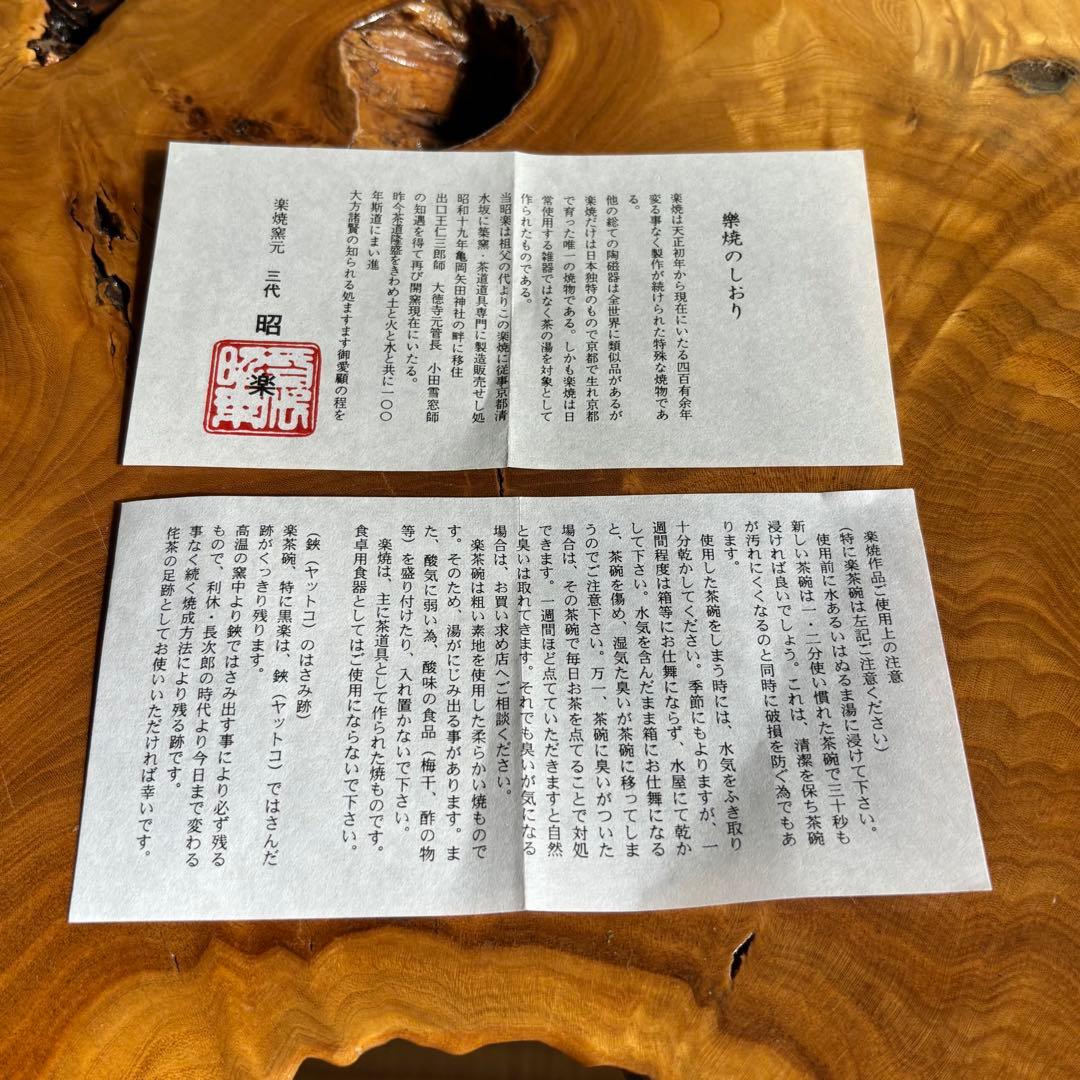 樂焼のしおり
楽焼は天正初年から現在にいたる四百有余年
変る事なく製作が続けられた特殊な焼物であ
る。
他の総ての陶磁器は全世界に類似品があるが
楽焼だけは日本独特のもので京都で生れ京都
で育った唯一の焼物である。しかも楽焼は日
常使用する雑器ではなく茶の湯を対象として
作られたものである。
当昭楽は祖父の代よりこの楽焼に従事京都清
水坂に築窯・茶道道具専門に製造販売せし処
昭和十九年亀岡矢田神社の畔に移住
出口王仁三郎師　大徳寺元管長　小田雪窓師
の知遇を得て再び開窯現在にいたる。
昨今茶道隆盛をきわめ土と火と水と共に一〇〇
年斯道にまい進
大方諸賢の知られる処ますます御愛顧の程を
楽焼窯元　三代　昭楽
楽焼作品ご使用上の注意
（特に楽茶碗は左記ご注意ください）
使用前に水あるいはぬるま湯に浸けて下さい。
新しい茶碗は一・二分使い慣れた茶碗で三十秒も
浸ければ良いでしょう。これは、清潔を保ち茶碗
が汚れにくくなるのと同時に破損を防ぐ為でもあ
ります。
使用した茶碗をしまう時には、水気をふき取り
十分乾かしてください。季節にもよりますが、一
週間程度は箱等にお仕舞にならず、水屋にて乾か
して下さい。水気を含んだまま箱にお仕舞になる
と、茶碗を傷め、湿気た臭いが茶碗に移ってしま
うのでご注意下さい。万一、茶碗に臭いがついた
場合は、その茶碗で毎日お茶を点てることで対処
できます。一週間ほど点てていただきますと自然
と臭いは取れてきます。それでも臭いが気になる
場合は、お買い求め店へご相談ください。
楽茶碗は粗い素地を使用した柔らかい焼もので
す。そのため、湯がにじみ出る事があります。ま
た、酸気に弱い為、酸味の食品（梅干、酢の物
等）を盛り付けたり、入れ置かないで下さい。
楽焼は、主に茶道具として作られた焼ものです。
食卓用食器としてはご使用にならないで下さい。
（鋏（ヤットコ）のはさみ跡）
楽茶碗、特に黒楽は、鋏（ヤットコ）ではさんだ
跡がくっきり残ります。
高温の窯中より鋏ではさみ出す事により必ず残る
もので、利休・長次郎の時代より今日まで変わる
事なく続く焼成方法により残る跡です。
侘茶の足跡としてお使いいただければ幸いです。